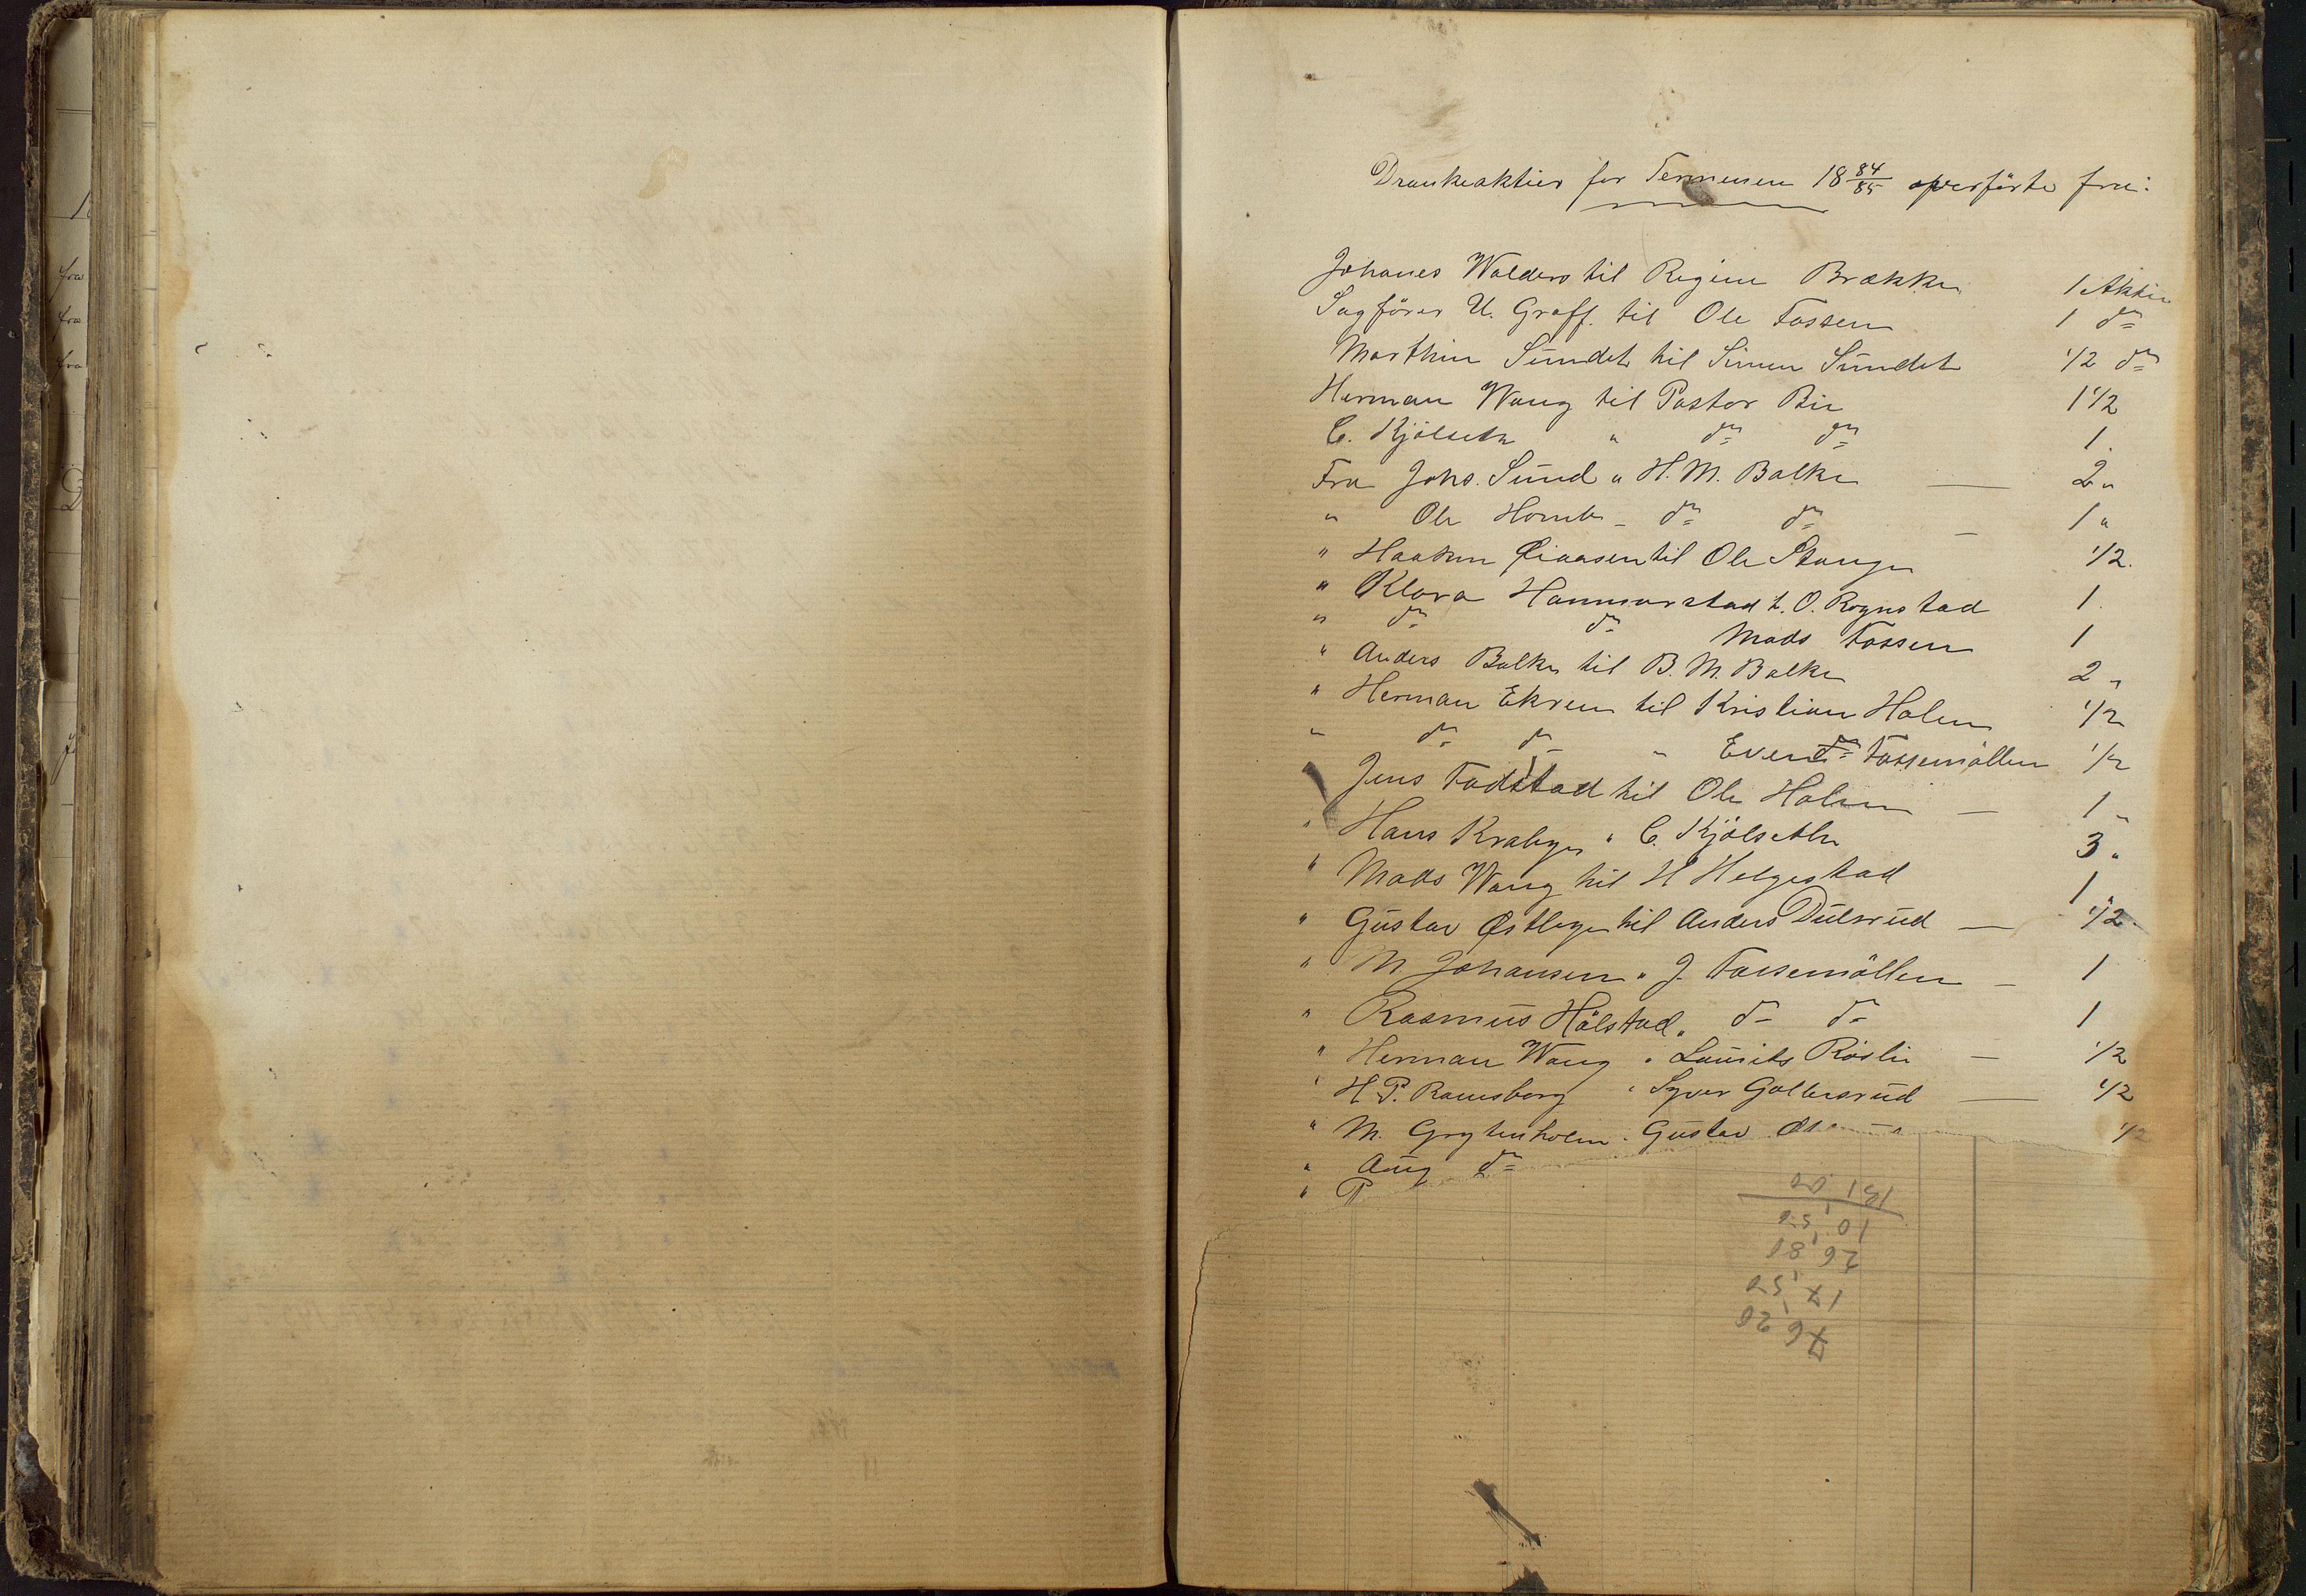 Drankeaktier for Terminen 18 84/85 overførte fra:
Johanes Walders til Regine Brække 1 Aktie
Sagförer U. Graff. til Ole Fossen 1 do
Marthin Sundet til Simen Sundet 1/2 do
Herman Wang til Pastor Bie 1 1/2
C. Kjölseth " do do 1.
Fra Johs. Sund " H. M. Balke — 2 "
" Ole Homb - do do — 1 "
" Haakon til Ole Stange 1/2.
" Klara Hammarstad t. O. Rognstad 1.
" do do Mads Fossen 1
" Anders Balke til B. M. Balke 2 "
" Herman Ekren til Kristian Holm 1/2
" do do " Even Fossemöllen 1/2
Jens Fodstad til Ole Holm — 1 "
" Hans Krabye " C. Kjölseth 3 "
" Mads Wang til H Helgestad 1 "
" Gustav Østlye til Anders Dulsrud — 1/2.
" M. Johansen " J. Fossemöllen — 1
" Rasmus Hölstad " do do 1
" Herman Wang " Laurits Röslie — 1/2
" H. P. Ramsberg " Syver Gallersrud — 1/2
" M. Grytenholm " Gustav 1/2
" Aug do
" P
76,20
17,50
26,80
10,50
131,00